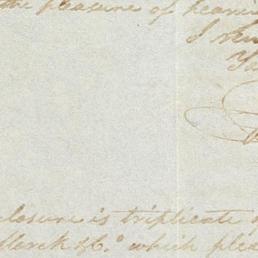 the pleasure of hearin
I
closure is triplicate o
Marck & Co. which plea